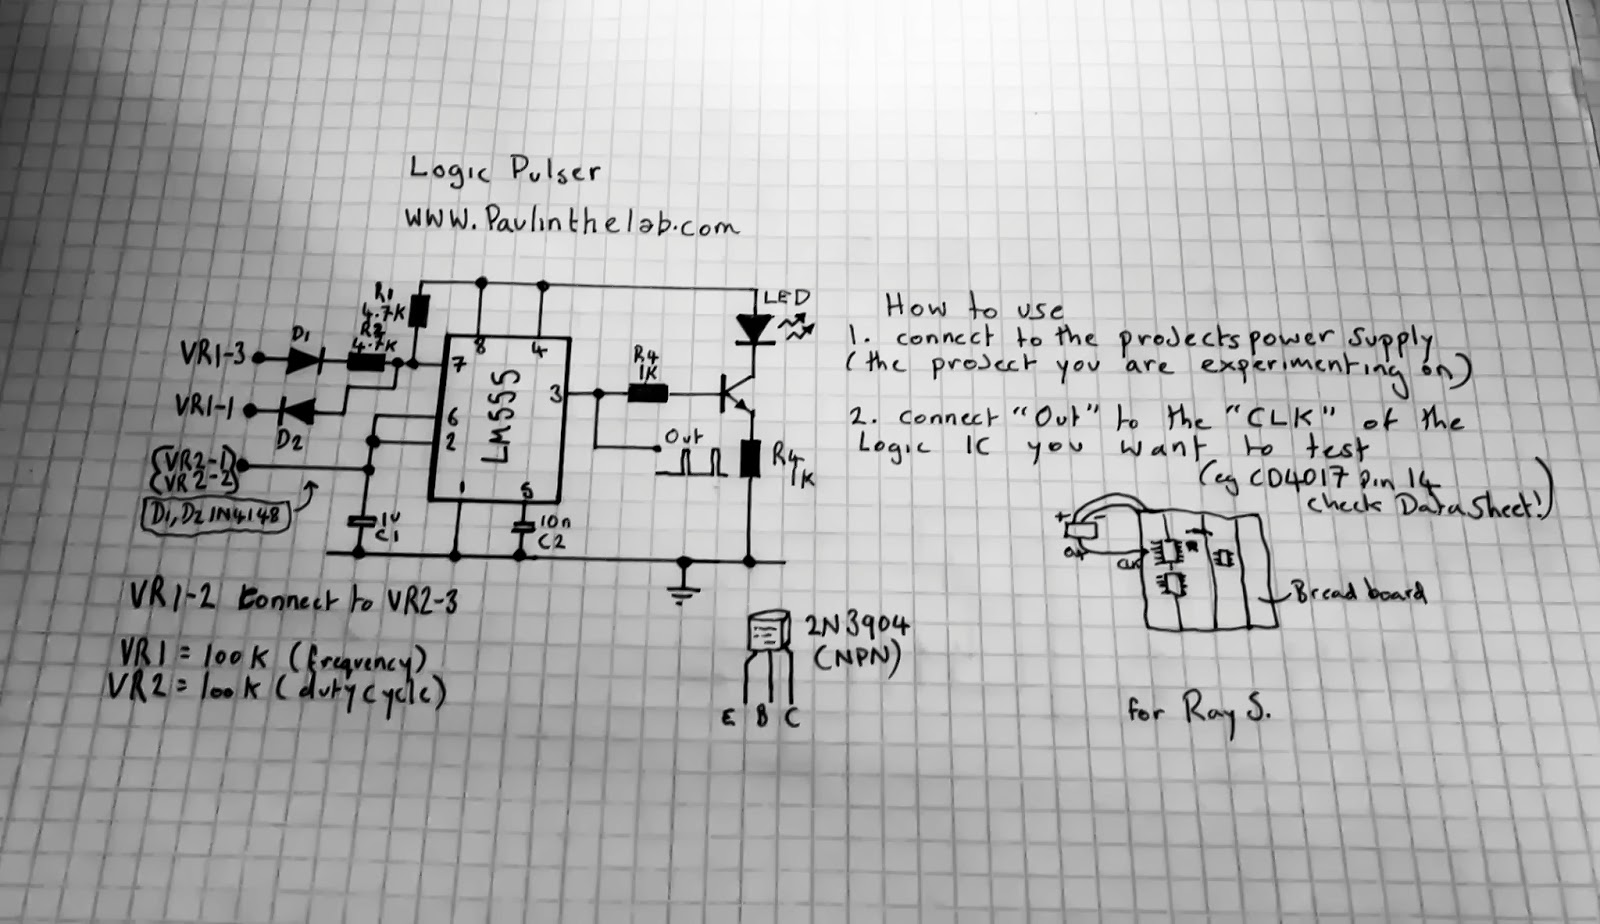 Logic Pulser
www.Paulinthelab.com
R1
4.7K
R2
4.7K
D1
VR1-3
VR1-1
D2
VR2-1
VR2-2
D1, D2 1N4148
7
8
4
6
2
3
1
5
LM555
1u
C1
10n
C2
R4
1K
Out
LED
R4
1K
VR1-2 Connect to VR2-3
VR1 = 100K (frequency)
VR2 = 100K (duty cycle)
2N3904
(NPN)
E B C
How to use
1. connect to the projects power supply
(the project you are experimenting on)
2. connect "Out" to the "CLK" of the
Logic IC you want to test
(eg CD4017 pin 14
check DataSheet!)
+ -
Out
CLK
Breadboard
for Ray S.